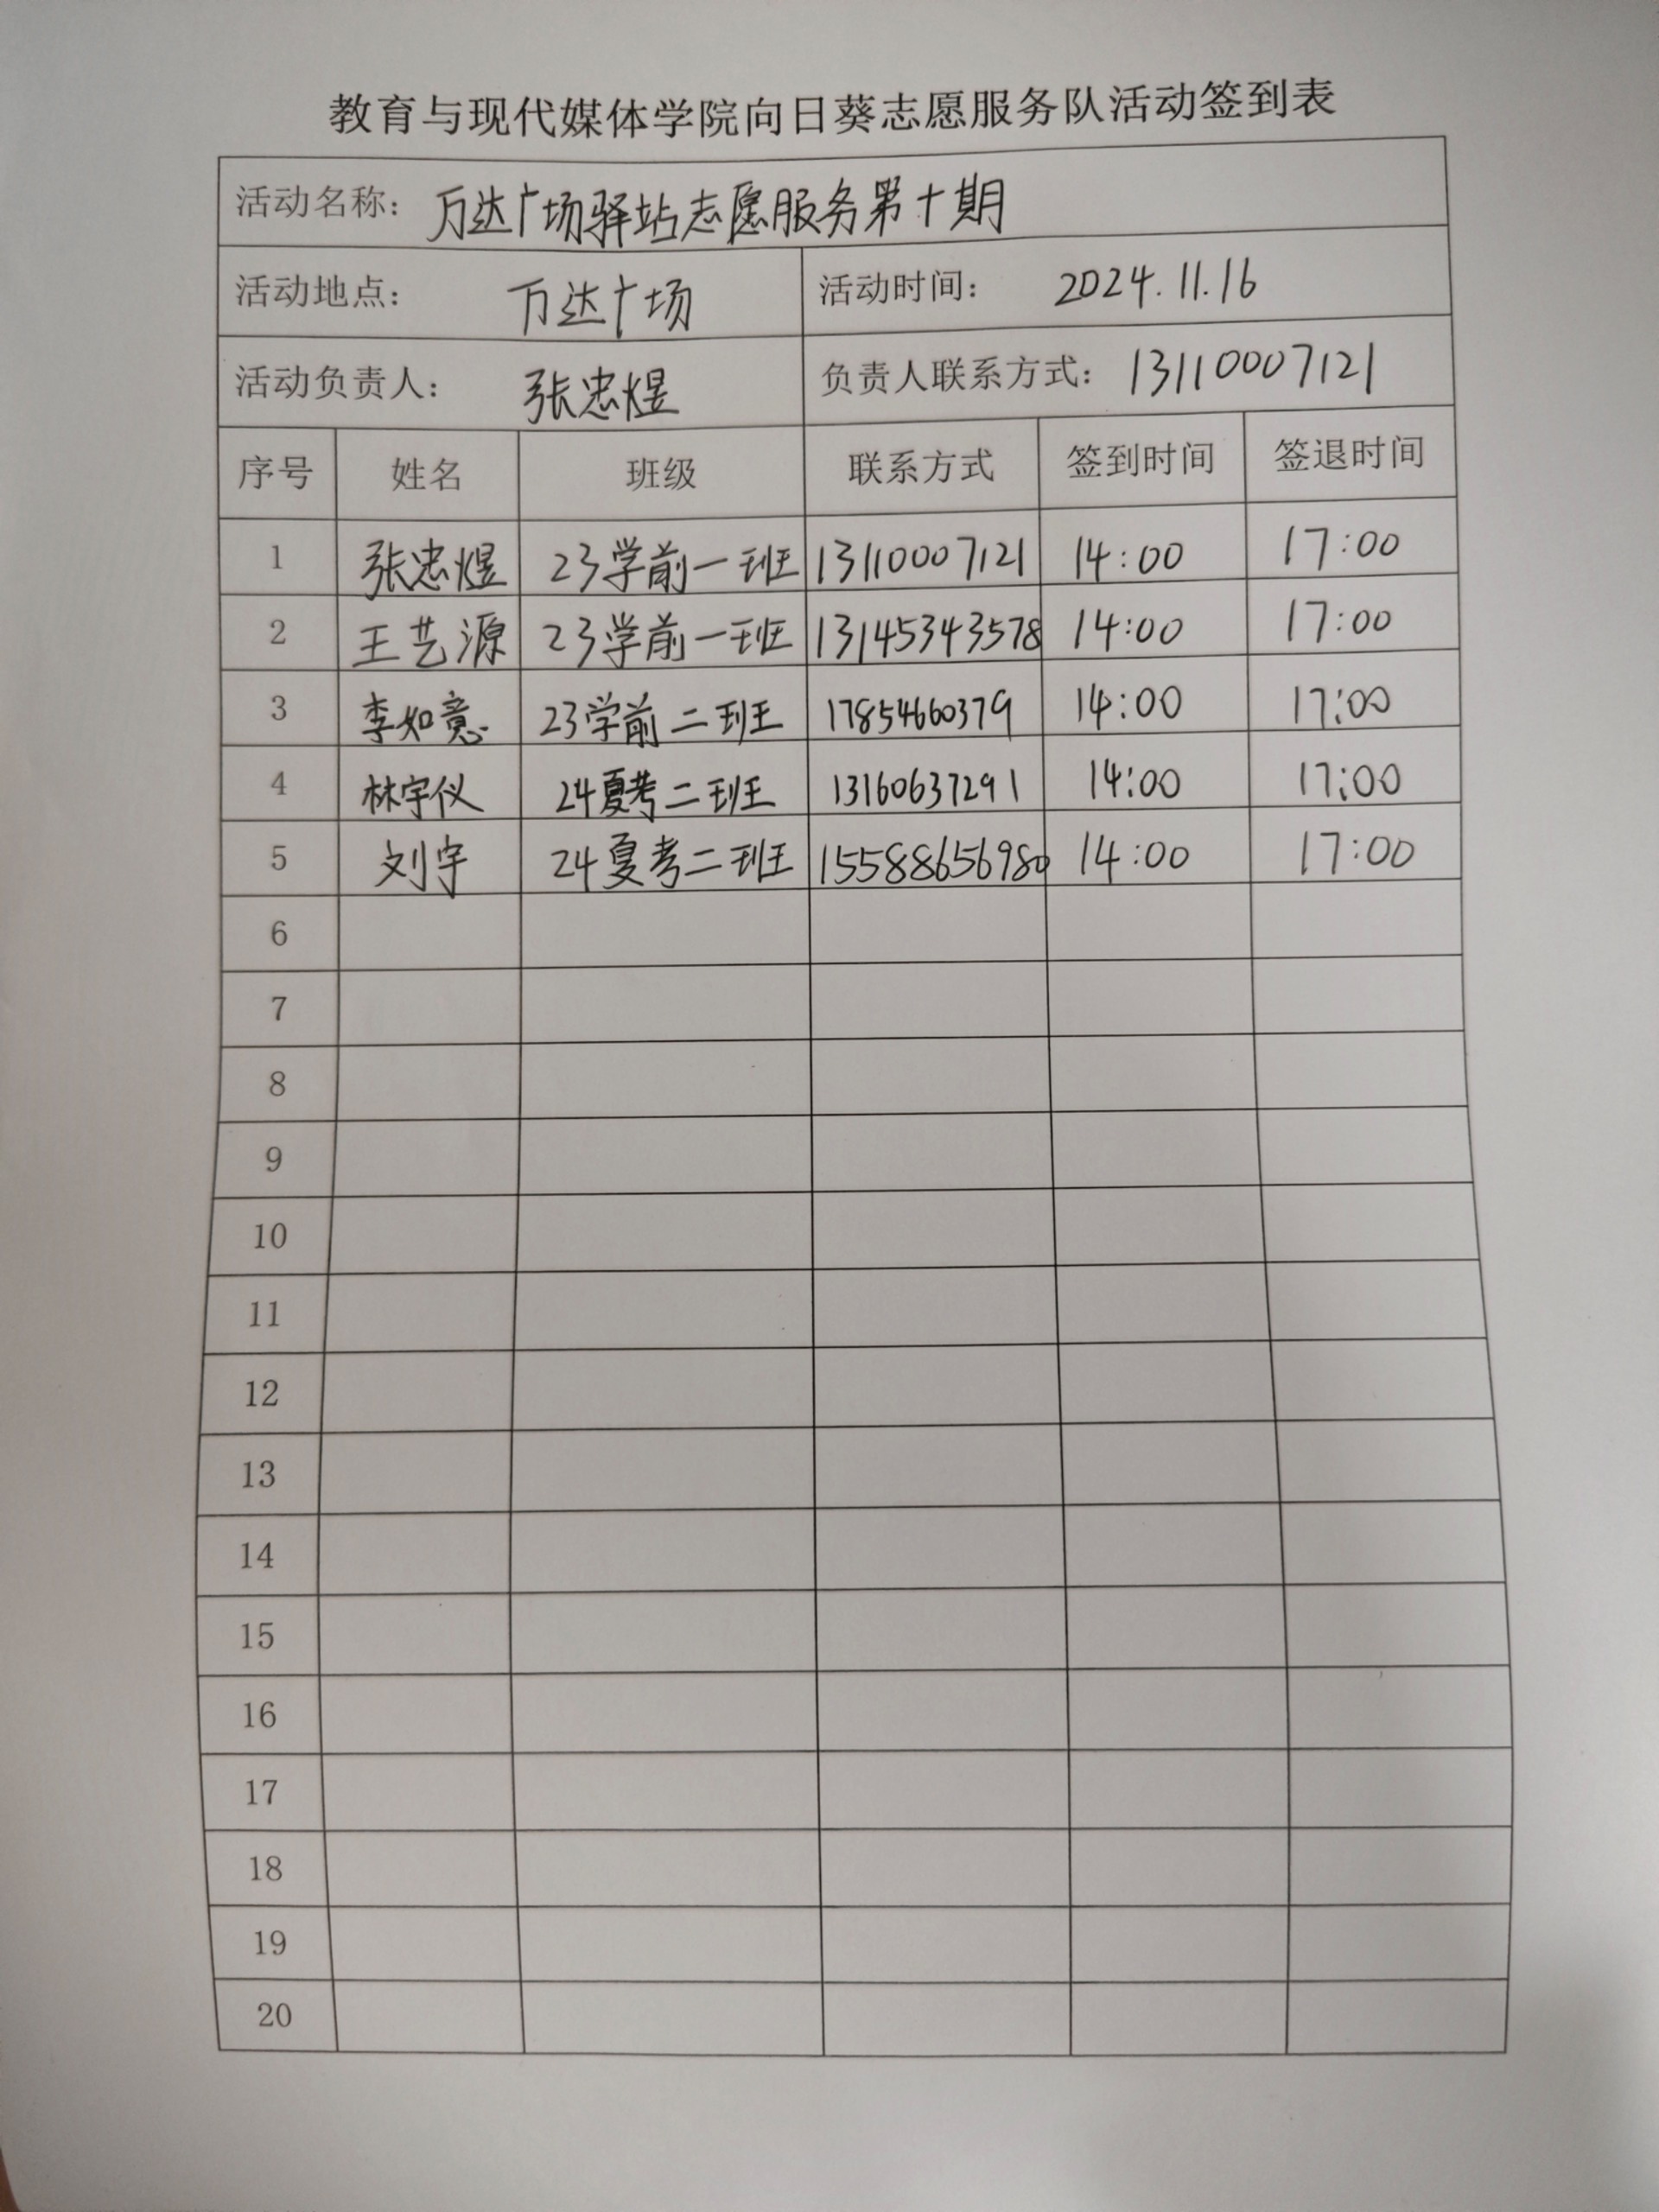 教育与现代媒体学院向日葵志愿服务队活动签到表
活动名称: 万达广场驿站志愿服务第十期
活动地点: 万达广场 活动时间: 2024.11.16
活动负责人: 张忠煜 负责人联系方式: 13110007121
序号 姓名 班级 联系方式 签到时间 签退时间
1 张忠煜 23学前一班 13110007121 14:00 17:00
2 王艺源 23学前一班 13145343578 14:00 17:00
3 李如意 23学前二班 17854660379 14:00 17:00
4 林宇仪 24夏考二班 13160637291 14:00 17:00
5 刘宇 24夏考二班 15588656980 14:00 17:00
6
7
8
9
10
11
12
13
14
15
16
17
18
19
20